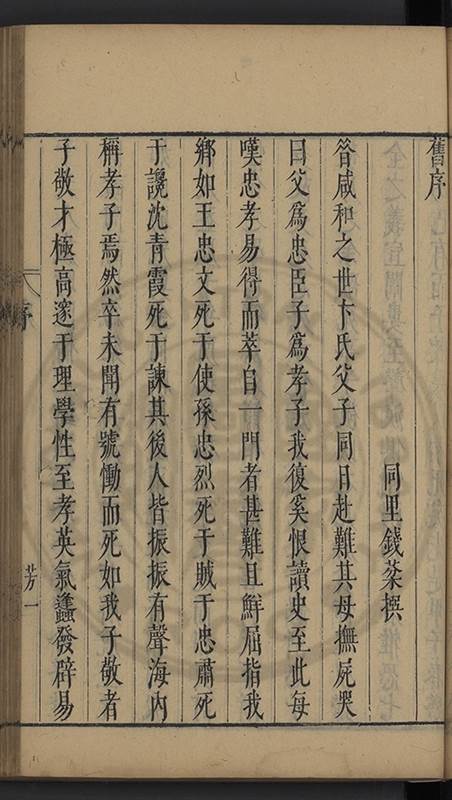 舊序
同里錢棻撰
晉咸和之世卞氏父子同日赴難其母撫屍哭
曰父為忠臣子為孝子我復奚恨讀史至此每
嘆忠孝易得而萃自一門者甚難且鮮屈指我
鄉如王忠文死于使孫忠烈死于賊于忠肅死
于讒沈青霞死于諫其後人皆振振有聲海内
稱孝子焉然卒未聞有號慟而死如我子敬者
子敬才極高邃于理學性至孝英氣蠭發辟易
序
芳一